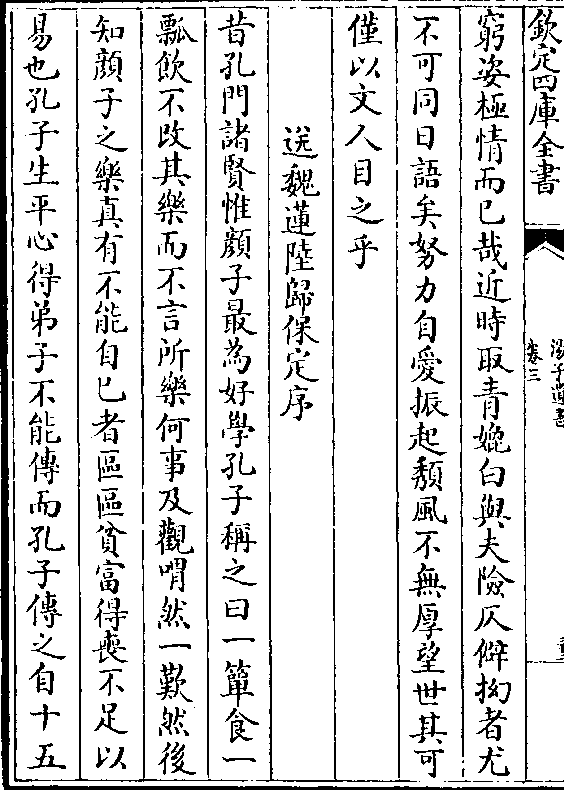 欽定四庫全書
湯子遺書
卷三
窮姿極情而已哉近時取青媲白與夫險仄僻拗者尤
不可同日語矣努力自愛振起頽風不無厚望世其可
僅以文人目之乎
送魏蓮陸歸保定序
昔孔門諸賢惟顔子最為好學孔子稱之曰一簞食一
瓢飲不改其樂而不言所樂何事及觀喟然一歎然後
知顔子之樂真有不能自已者區區貧富得喪不足以
易也孔子生平心得弟子不能傳而孔子傳之自十五